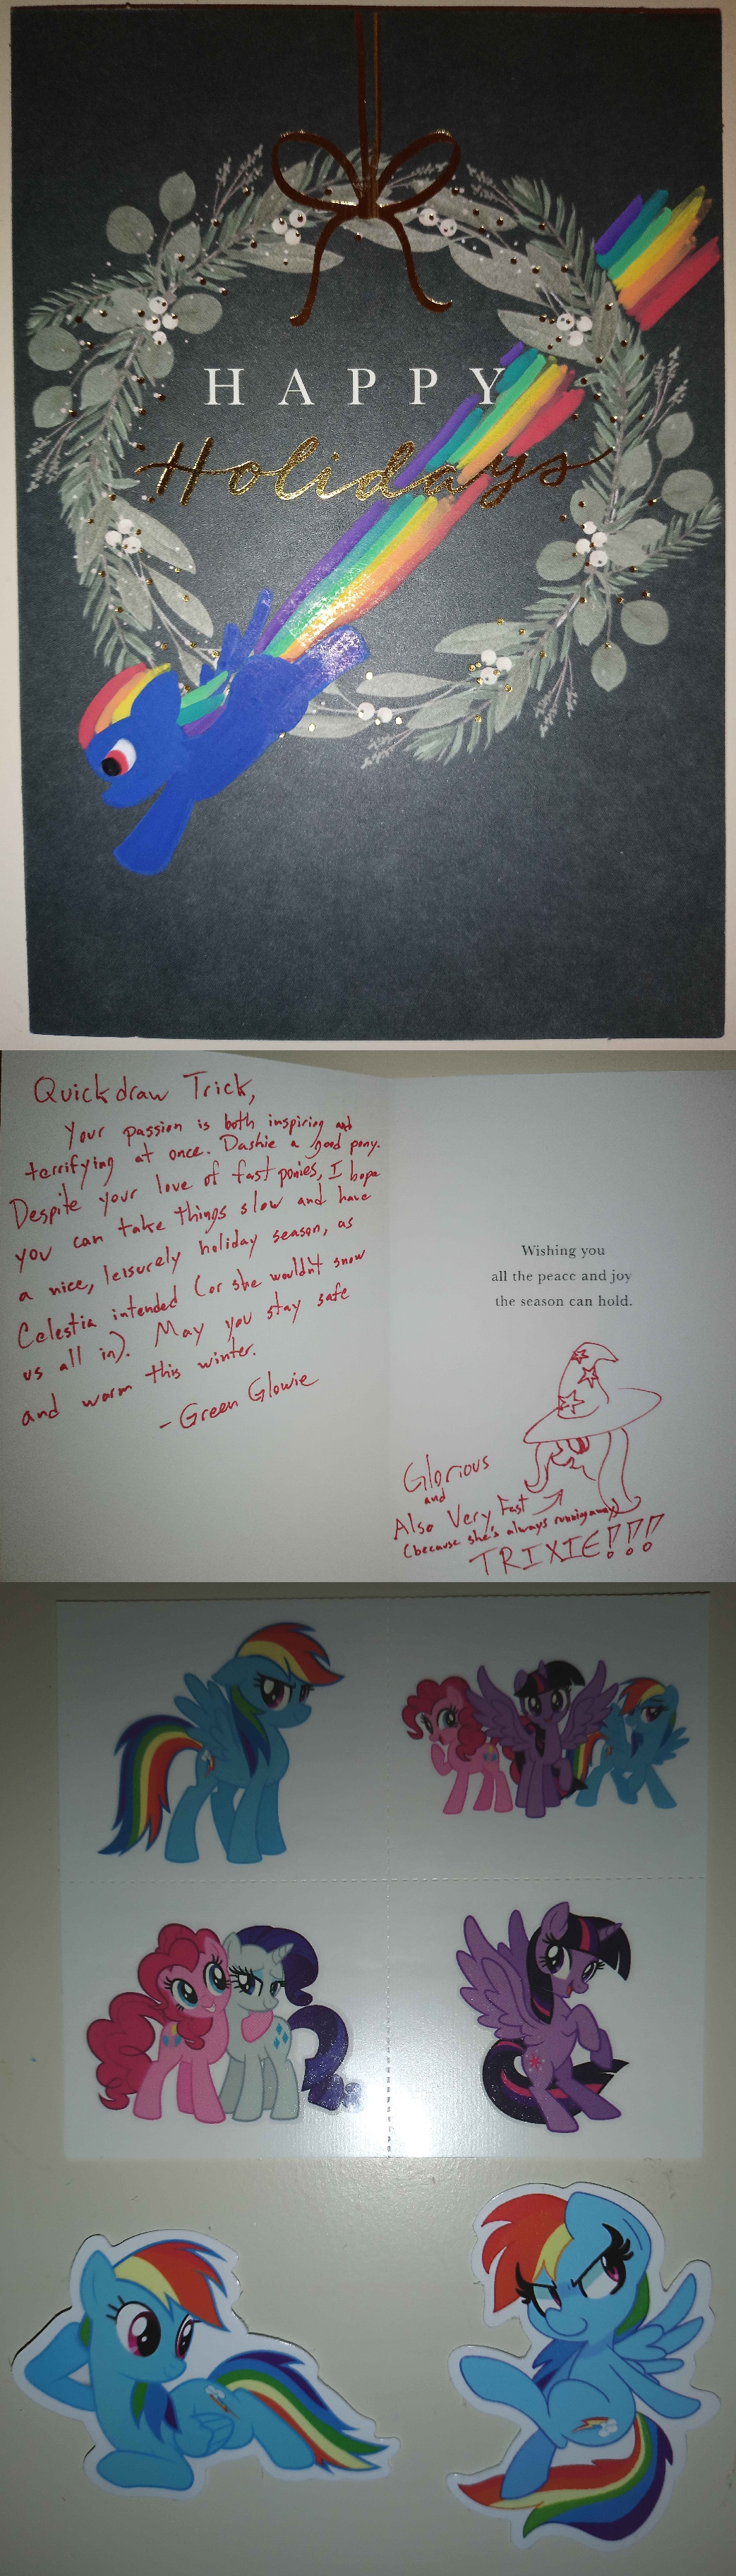 HAPPY
Holidays
Quickdraw Trick,
Your passion is both inspiring and
terrifying at once. Dashie a good pony.
Despite your love of fast ponies, I hope
you can take things slow and have
a nice, leisurely holiday season, as
Celestia intended (or she wouldn't snow
us all in). May you stay safe
and warm this winter.
- Green Glowie
Wishing you
all the peace and joy
the season can hold.
Glorious
and
Also Very Fast
(because she's always running away)
TRIXIE!!!